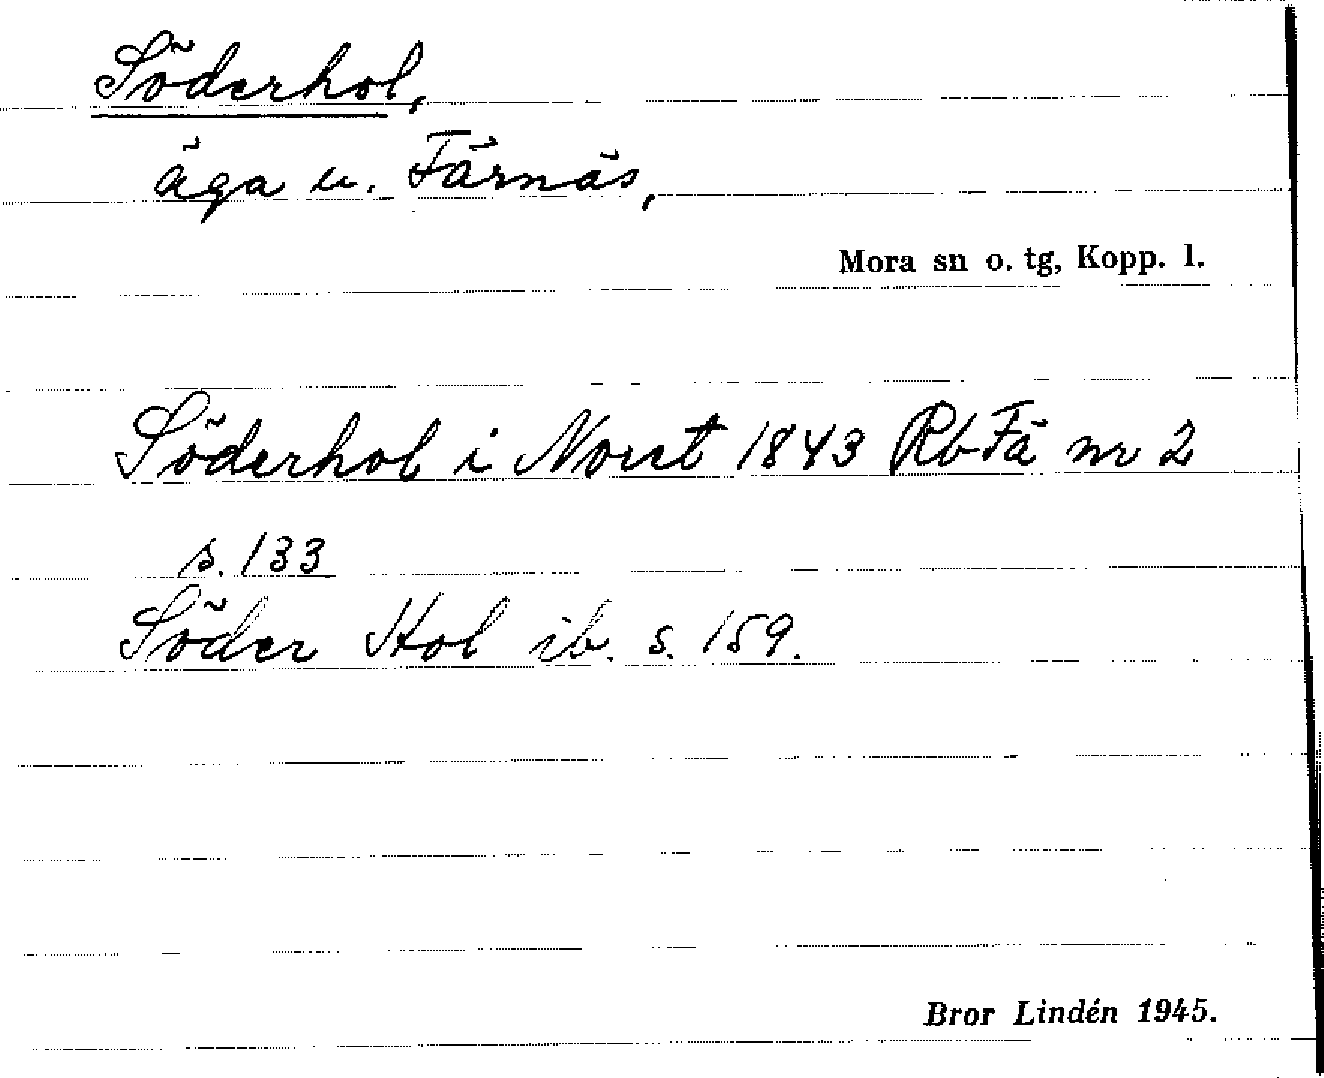 Söderhol,
äga u. Färnäs,
Mora sn o. tg, Kopp. l.
Söderhol i Noret 1843 RbFä nr 2
s. 133
Söder Hol ib. s. 159.
Bror Lindén 1945.